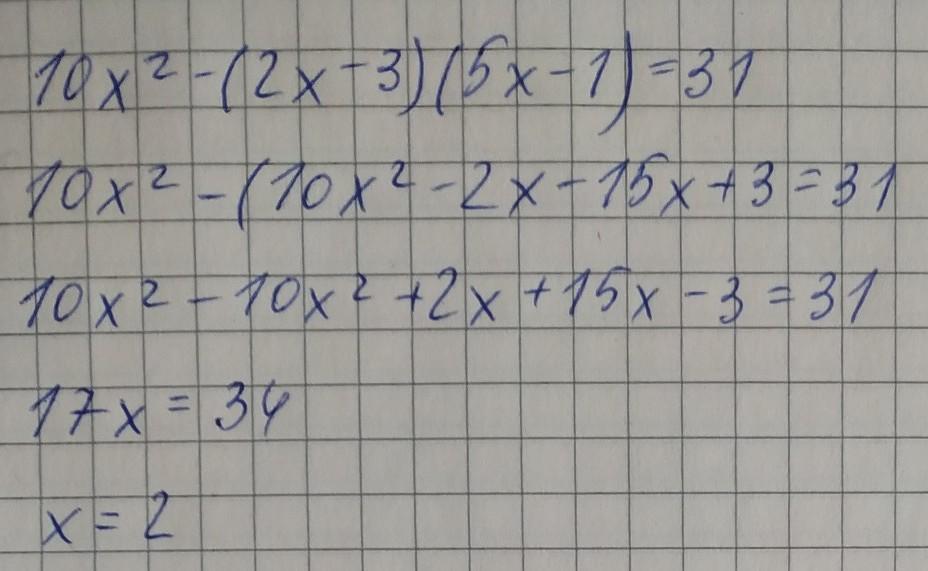 10x² - (2x - 3)(5x - 1) = 31
10x² - (10x² - 2x - 15x + 3 = 31
10x² - 10x² + 2x + 15x - 3 = 31
17x = 34
x = 2